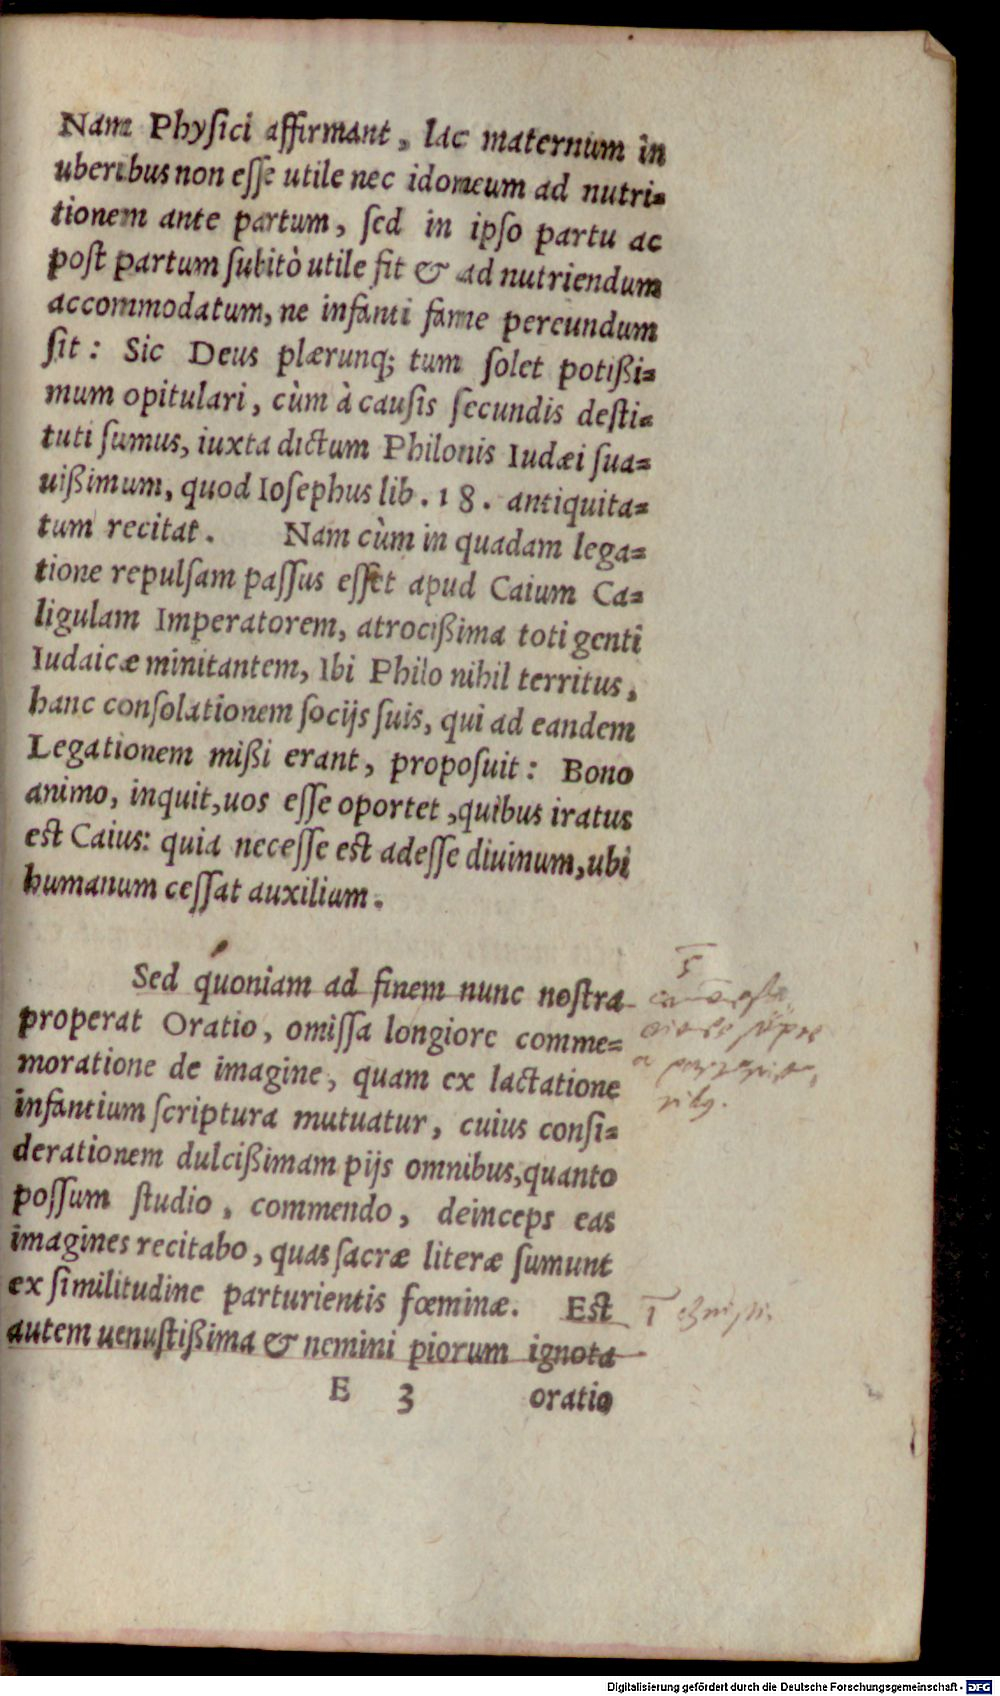 Nam Phyſici affirmant, lac maternum in
uberibus non eſſe utile nec idoneum ad nutri=
tionem ante partum, ſed in ipſo partu ac
poſt partum ſubitò utile fit & ad nutriendum
accommodatum, ne infanti fame pereundum
ſit: Sic Deus plærunq; tum ſolet potißi=
mum opitulari, cùm à cauſis ſecundis deſti=
tuti ſumus, iuxta dictum Philonis Iudæi ſua=
uißimum, quod Ioſephus lib. 18. antiquita=
tum recitat. Nam cùm in quadam lega=
tione repulſam paſſus eſſet apud Caium Ca=
ligulam Imperatorem, atrocißima toti genti
Iudaicæ minitantem, Ibi Philo nihil territus,
hanc conſolationem ſocijs ſuis, qui ad eandem
Legationem mißi erant, propoſuit: Bono
animo, inquit, uos eſſe oportet, quibus iratus
eſt Caius: quia neceſſe eſt adeſſe diuinum, ubi
humanum ceſſat auxilium.
Sed quoniam ad finem nunc noſtra
properat Oratio, omiſſa longiore comme=
moratione de imagine, quam ex lactatione
infantium ſcriptura mutuatur, cuius conſi=
derationem dulcißimam pijs omnibus, quanto
poſſum ſtudio, commendo, deinceps eas
imagines recitabo, quas ſacræ literæ ſumunt
ex ſimilitudine parturientis fœminæ. Eſt
autem uenuſtißima & nemini piorum ignota
E 3 oratio
Digitalisierung gefördert durch die Deutsche Forschungsgemeinschaft - DFG